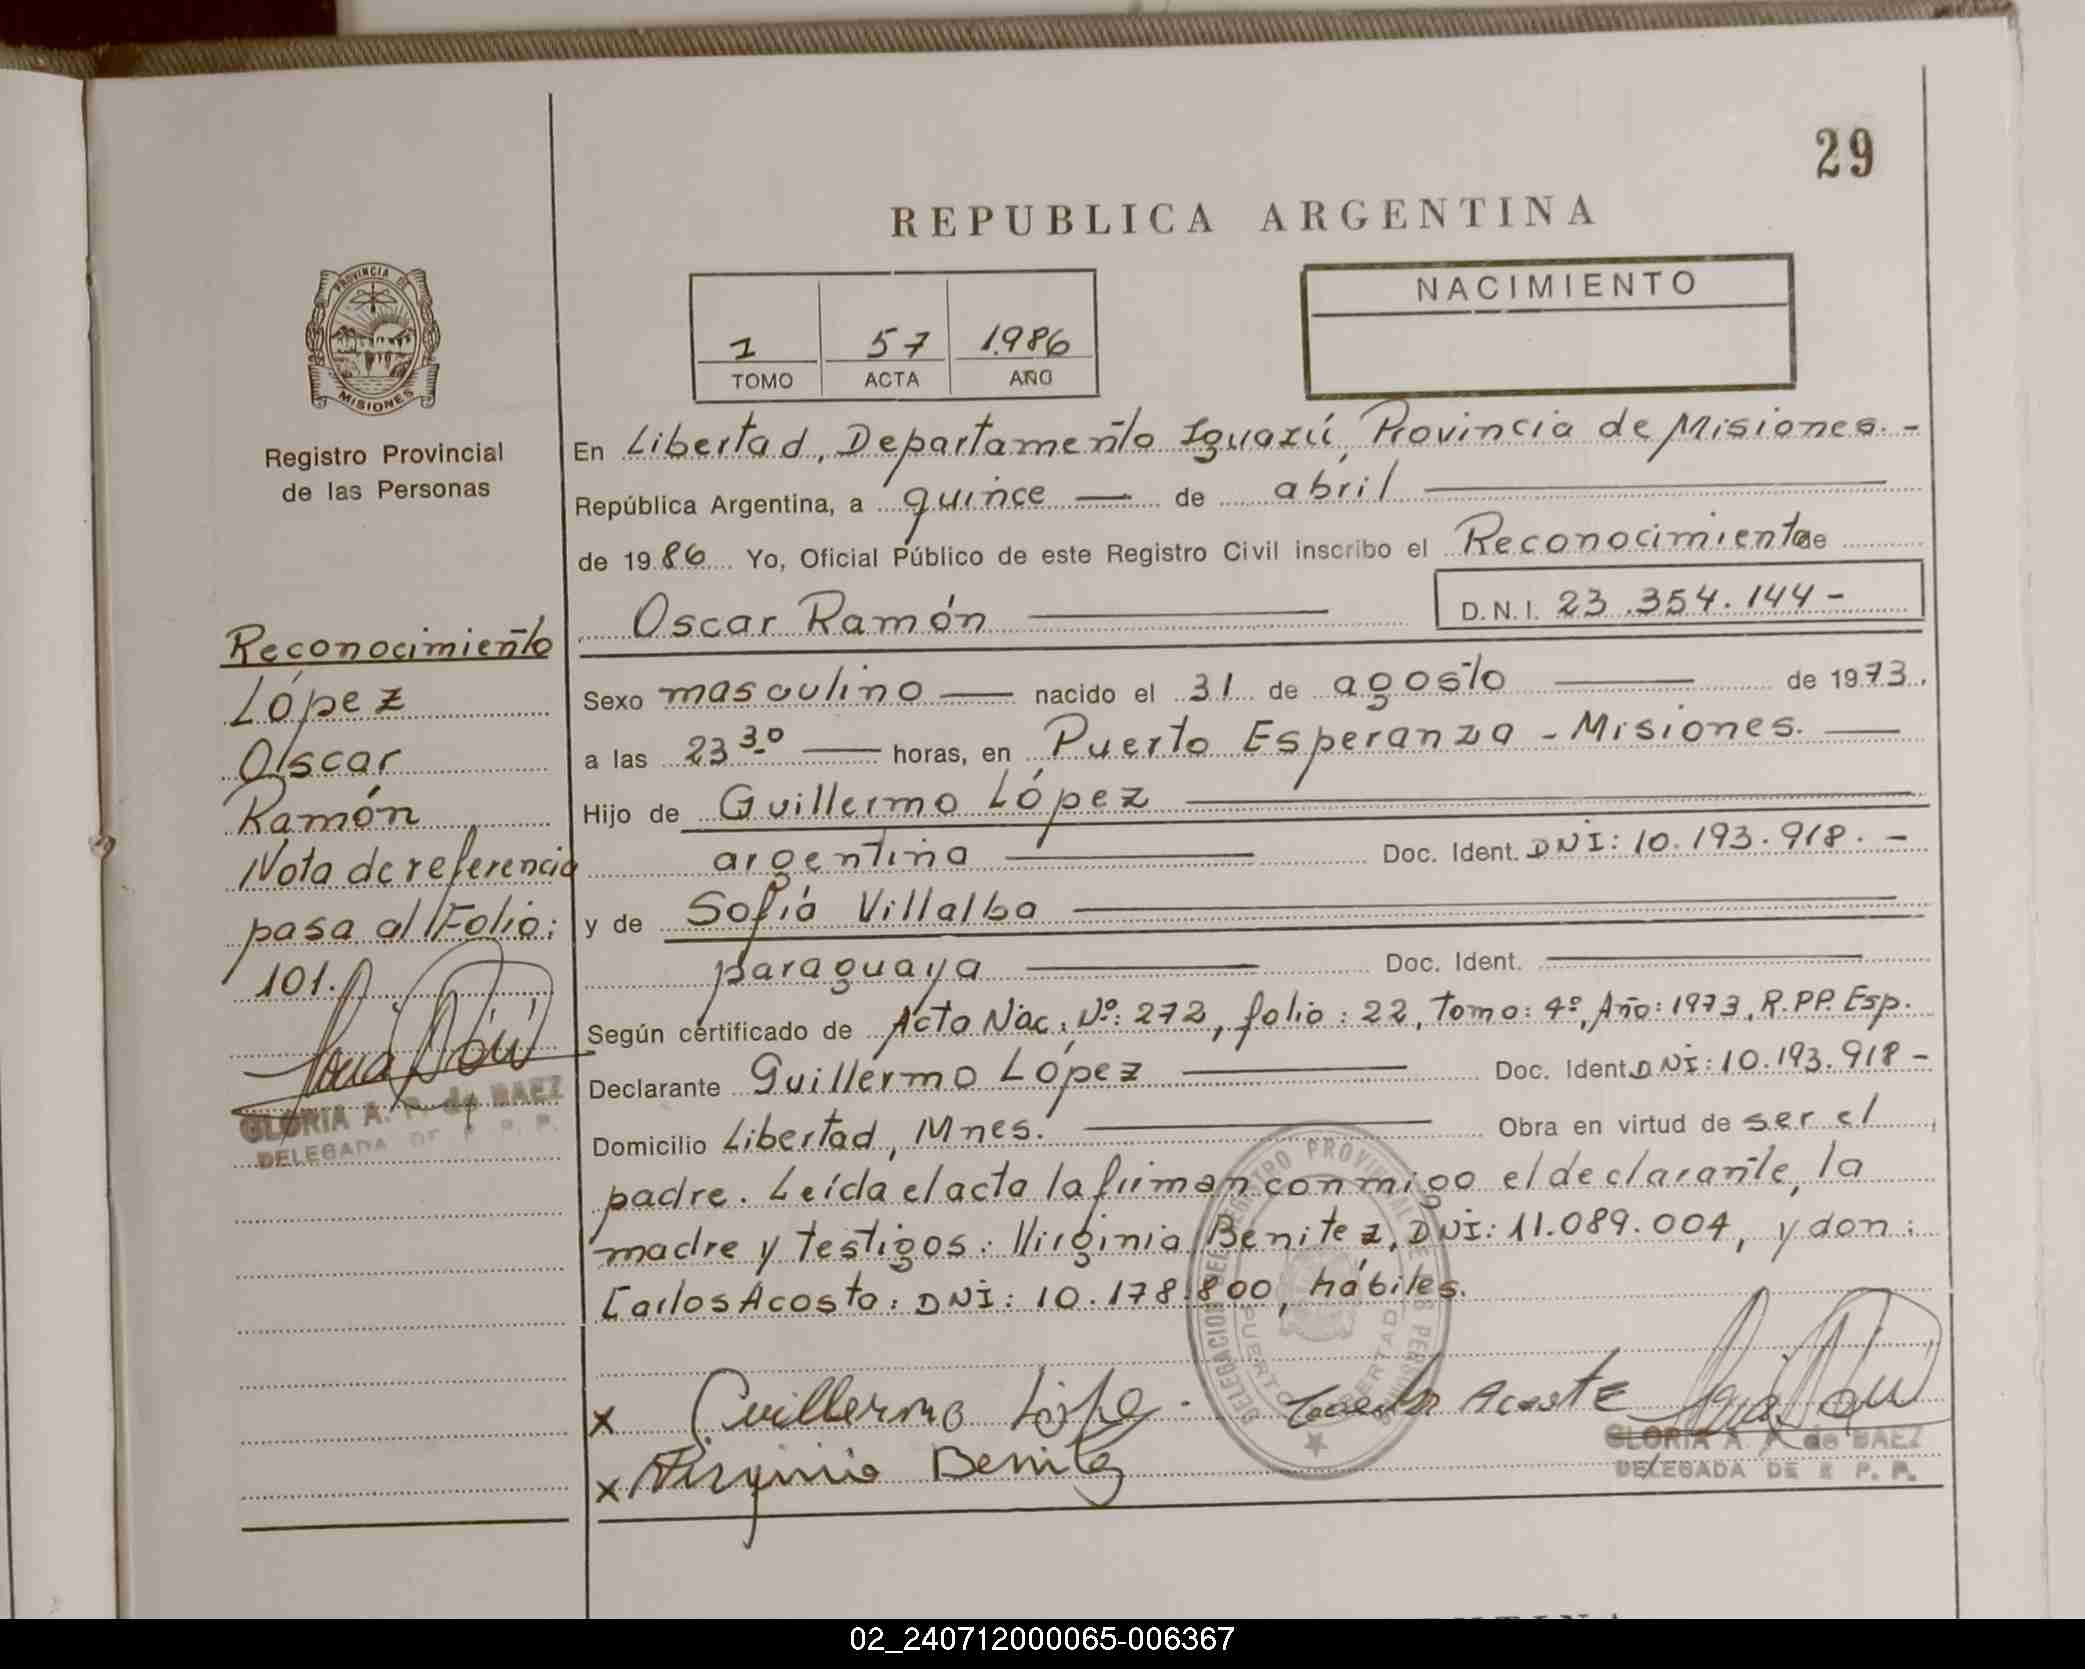 29
REPUBLICA ARGENTINA
PROVINCIA DE
MISIONES
Registro Provincial
de las Personas
1 57 1986
TOMO ACTA AÑO
NACIMIENTO
En Libertad, Departamento Iguazú, Provincia de Misiones. -
República Argentina, a quince — de abril —
de 1986 Yo, Oficial Público de este Registro Civil inscribo el Reconocimiento de
Oscar Ramón — D.N.I. 23.354.144 -
Sexo masculino — nacido el 31 de agosto — de 1973.
a las 23 30 — horas, en Puerto Esperanza - Misiones. —
Hijo de Guillermo López —
argentina — Doc. Ident. DNI: 10.193.918. -
y de Sofía Villalba —
paraguaya — Doc. Ident. —
Según certificado de Acta Nac. Nº: 272, folio: 22, Tomo: 4º, Año: 1973, R.PP. Esp.
Declarante Guillermo López — Doc. Ident. DNI: 10.193.918 -
Domicilio Libertad, Mnes. — Obra en virtud de ser el
padre. Leída el acta la firman conmigo el declarante, la
madre y testigos: Virginia Benitez, DNI: 11.089.004, y don:
Carlos Acosta: DNI: 10.178.800, hábiles.
x Guillermo López.
Acosta
x Virginia Benitez
GLORIA A. P. de BAEZ
DELEGADA DE R. P. P.
Reconocimiento
López
Oscar
Ramón
Nota de referencia
pasa al Folio:
101.
GLORIA A. P. de BAEZ
DELEGADA DE R. P. P.
DELEGACION DEL REGISTRO PROVINCIAL DE LAS PERSONAS
PUERTO LIBERTAD
02_240712000065-006367